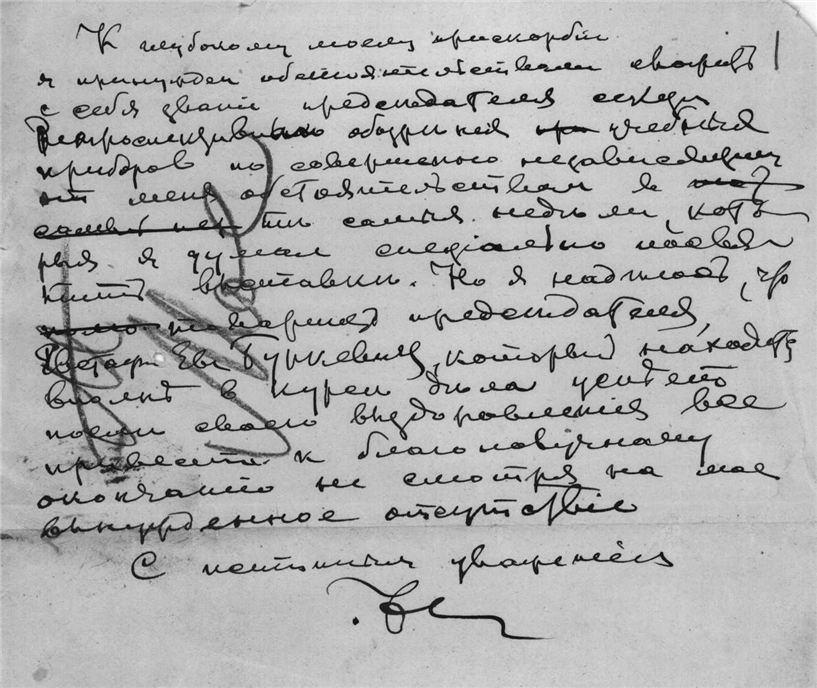 К глубокому моему прискорбію
я принужден обстоятельствами сложить
с себя званіе председателя секціи
Ретроспективнаго обозрѣнія учебныхъ
приборов по совершенно независящим
от меня обстоятельствам в
тѣ самыя недѣли, кото
рыя я думал спеціально посвя
тить выставки. Но я надѣюсь, что
товарищъ председателя,
Густав Ев Туркевичъ, который находится
вполнѣ в курсѣ дѣла успѣетъ
послѣ своего выздоровленія все
привести к благополучному
окончанію не смотря на мое
вынужденное отсутствіе
С истиннымъ уваженіем